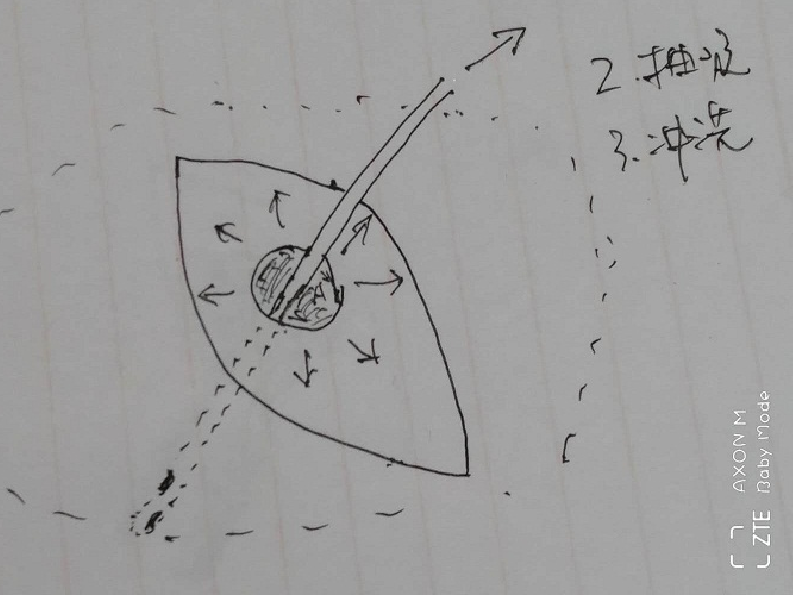 2.抽吸
3.冲洗
AXON M
ZTE Baby Mode